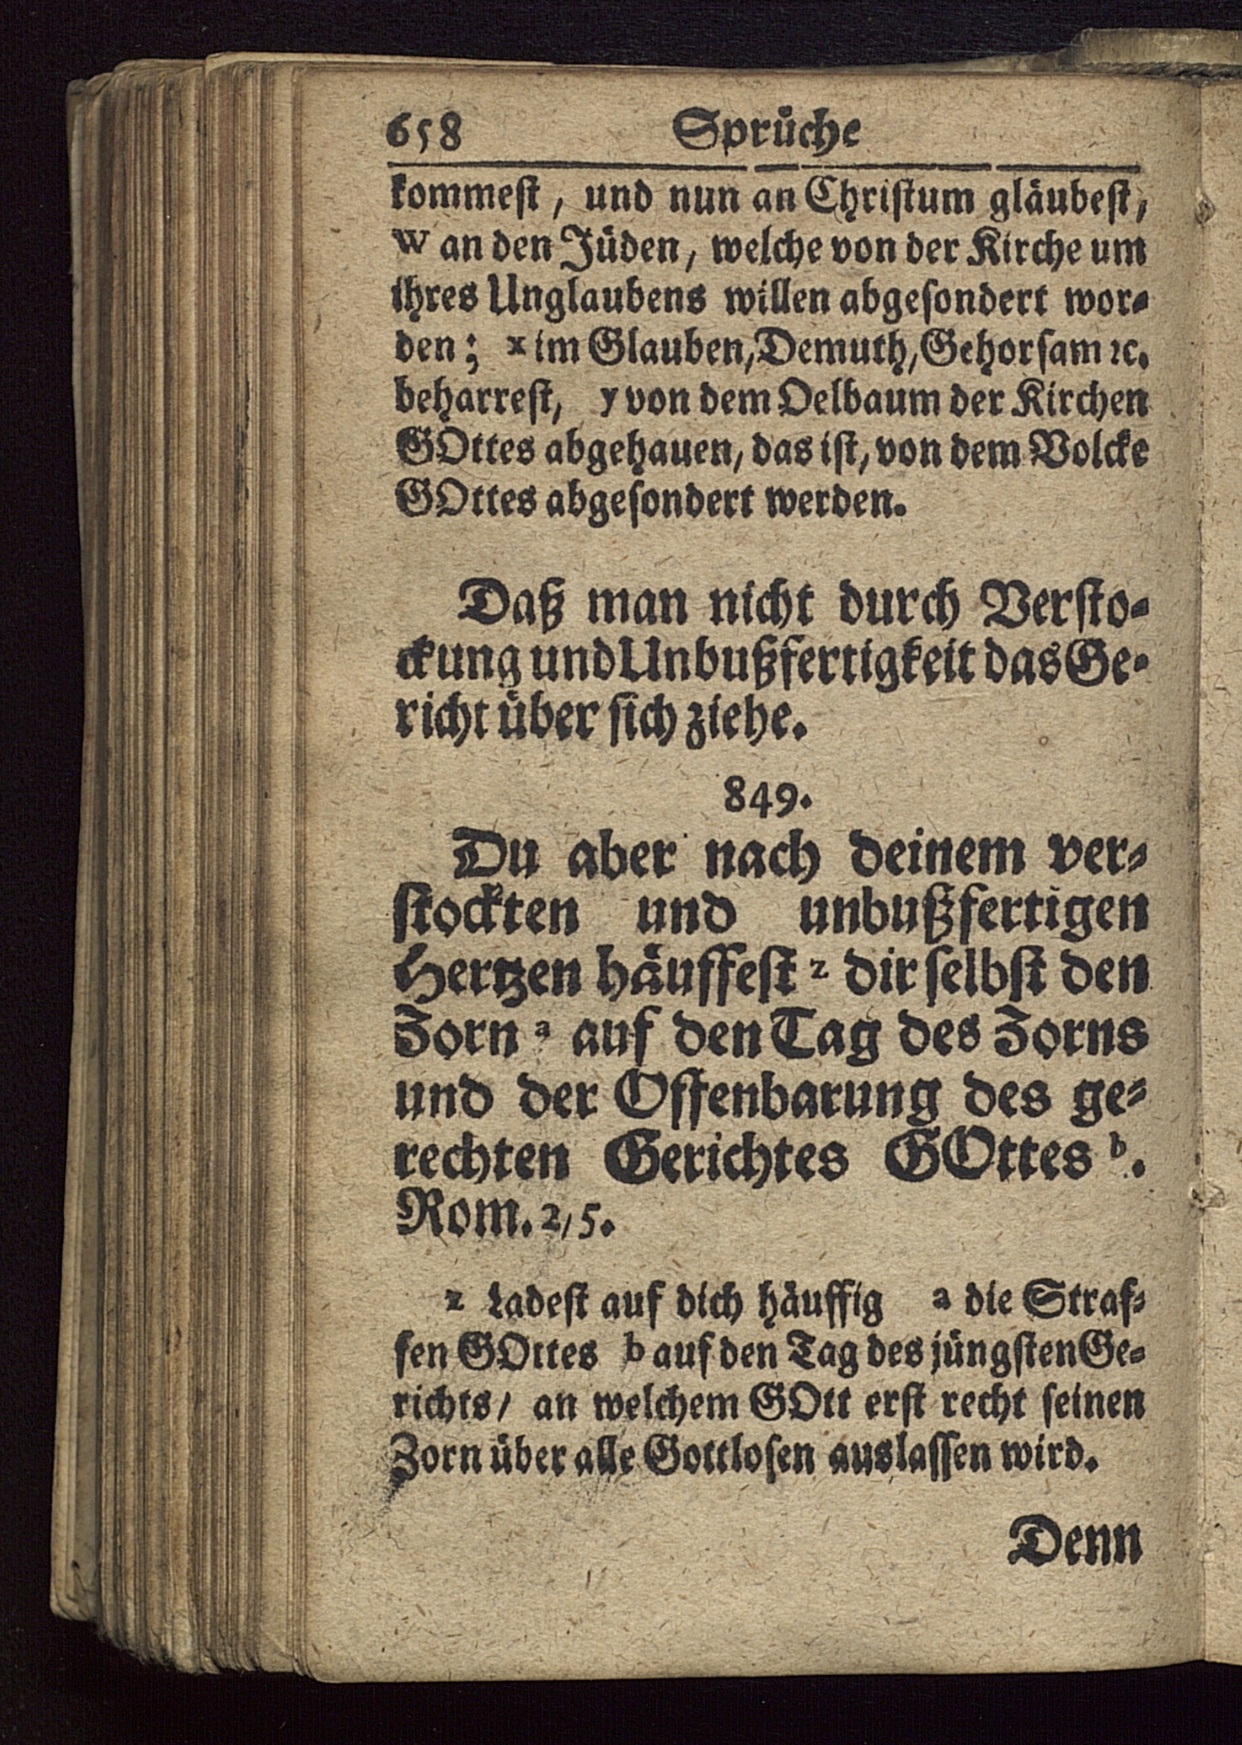 658 Sprüche
kommest, und nun an Christum gläubest,
w an den Jüden, welche von der Kirche um
ihres Unglaubens willen abgesondert wor-
den; x im Glauben, Demuth, Gehorsam ꝛc.
beharrest, y von dem Oelbaum der Kirchen
GOttes abgehauen, das ist, von dem Volcke
GOttes abgesondert werden.
Daß man nicht durch Versto-
ckung und Unbußfertigkeit das Ge-
richt über sich ziehe.
849.
Du aber nach deinem ver-
stockten und unbußfertigen
Hertzen häuffest z dir selbst den
Zorn a auf den Tag des Zorns
und der Offenbarung des ge-
rechten Gerichtes GOttes b.
Rom. 2/5.
z Ladest auf dich häuffig a die Straf-
fen GOttes b auf den Tag des jüngsten Ge-
richts/ an welchem GOtt erst recht seinen
Zorn über alle Gottlosen auslassen wird.
Denn